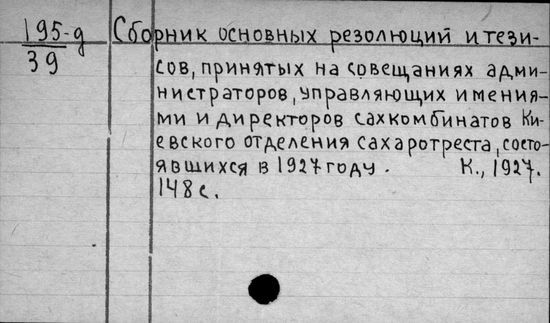 195-д Сборник основных резолюций и тези-
39
сов, принятых на совещаниях адми-
нистраторов, управляющих имения-
ми и директоров сахкомбинатов Ки-
евского отделения Сахаротреста, состо-
явшихся в 1927 году. К., 1927.
148 с.